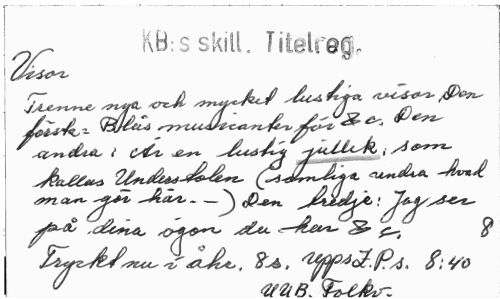 KB:s skill. Titelreg.
Visor
Trenne nya och mycket lustiga visor, Den
första: Blås musicanter för &c. Den
andra: Är en lustig jullek, som
kallas Understolen (samliga undra hvad
man gör här. —) Den tredje: Jag ser
på dina ögon du har &c. 8
Tryckt nu i åhr. 8s. Upps Z.P.s. 8:40
UUB. Folkv.